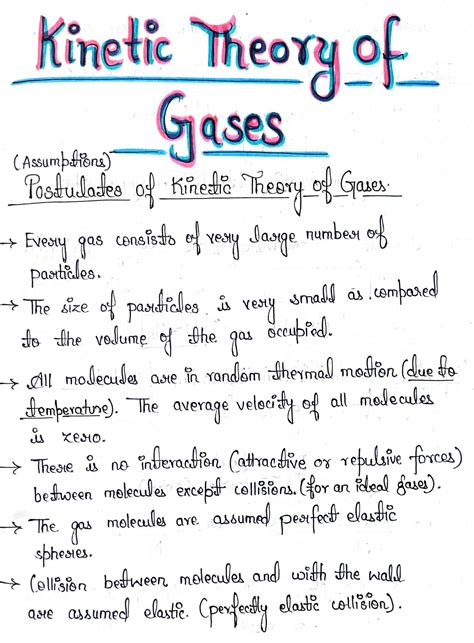 Kinetic Theory of
Gases
(Assumptions)
Postulates of Kinetic Theory of Gases.
→ Every gas consists of very large number of
particles.
→ The size of particles is very small as compared
to the volume of the gas occupied.
→ All molecules are in random thermal motion (due to
temperature). The average velocity of all molecules
is zero.
→ There is no interaction (attractive or repulsive forces)
between molecules except collisions. (for an ideal gases).
→ The gas molecules are assumed perfect elastic
spheres.
→ Collision between molecules and with the wall
are assumed elastic. (perfectly elastic collision).